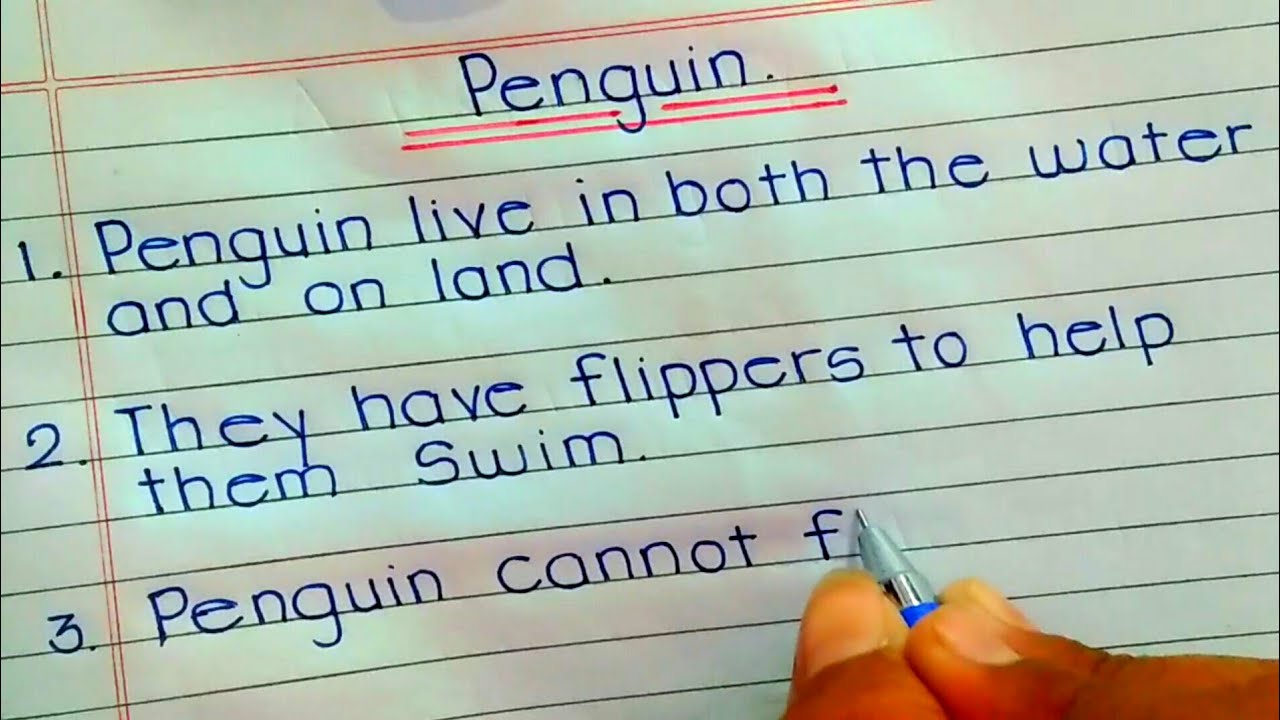 Penguin.
1. Penguin live in both the water
and on land.
2. They have flippers to help
them Swim.
3. Penguin cannot f